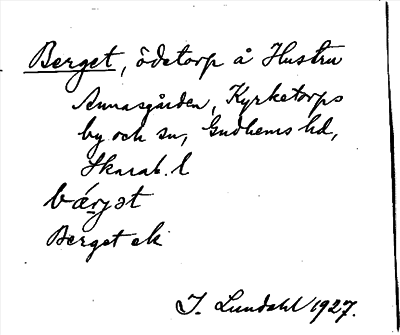 Berget, ödetorp å Hustru
Annasgården, Kyrketorps
by och sn, Gudhems hd,
Skarab. l
bǽrjət
Berget ek
I. Lundahl 1927.